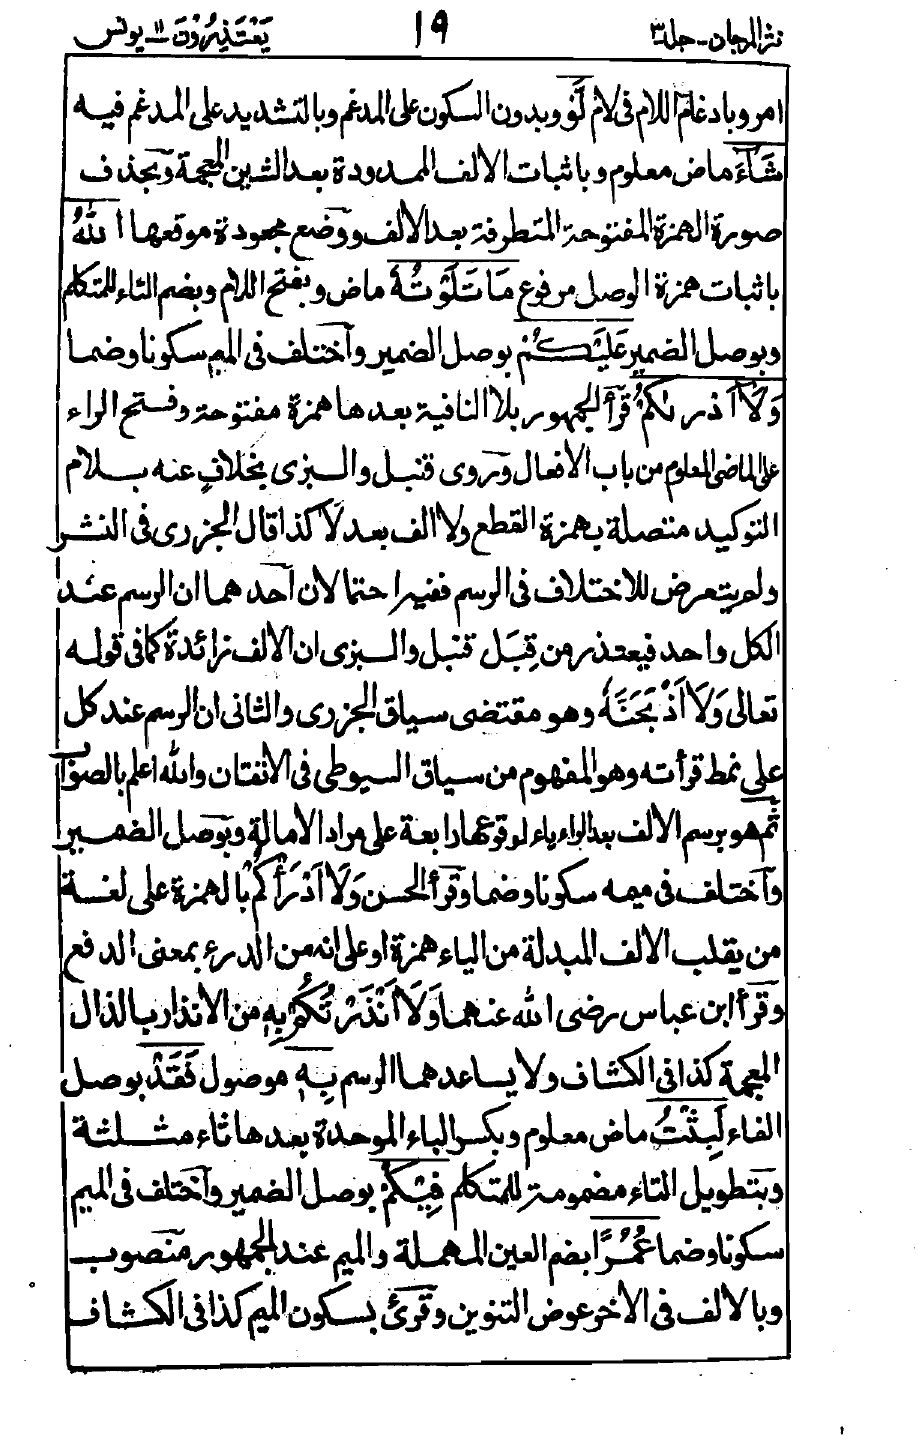 نثر المرجان - جلد ٣
١٩
يعتذرون ١١ - يونس
امر وبادغام اللام فى لام لَوْ وبدون السكون على المدغم وبالتشديد على المدغم فيه
شَآءَ ماض معلوم وباثبات الالف الممدودة بعد الشين المعجمة وبحذف
صورة الهمزة المفتوحة المتطرفة بعد الالف ووضع مجعودة موقعها اللهُ
باثبات همزة الوصل مرفوع مَا تَلَوْتُهُ ماض وبفتح اللام وبضم التاء للمتكلم
وبوصل الضمير عَلَيْكُمْ بوصل الضمير واختلف فى الميم سكونا وضما
وَلَآ اَدْرٰىكُمْ قرأ الجمهور بلا النافية بعدها همزة مفتوحة وفتح الراء
على الماضى المعلوم من باب الافعال وروى قنبل والبزى بخلاف عنه بلام
التوكيد متصلة بهمزة القطع ولا الف بعد لا كذا قال الجزرى فى النشر
ولم يتعرض للاختلاف فى الرسم ففيه احتمالان احدهما ان الرسم عند
الكل واحد فيعتذر من قِبَل قنبل والبزى ان الالف زائدة كما فى قوله
تعالى وَلَا اَذْبَحَنَّهٗ وهو مقتضى سياق الجزرى والثانى ان الرسم عند كل
على نمط قرأته وهو المفهوم من سياق السيوطى فى الاتقان والله اعلم بالصواب
ثم هو برسم الالف بعد الراء ياء لوقوعها رابعة على مراد الامالة وبوصل الضمير
واختلف فى ميمه سكونا وضما وقرأ الحسن وَلَا اَدْرَأْكُمْ بالهمزة على لغة
من يقلب الالف المبدلة من الياء همزة او على انه من الدرء بمعنى الدفع
وقرأ ابن عباس رضى الله عنهما وَلَا اَنْذَرْتُكُمْ بِهٖ من الانذار بالذال
المعجمة كذا فى الكشاف ولا يساعدهما الرسم بِهٖ موصول فَقَدْ بوصل
الفاء لَبِثْتُ ماض معلوم وبكسر الباء الموحدة بعدها ثاء مثلثة
وبتطويل التاء مضمومة للمتكلم فِيْكُمْ بوصل الضمير واختلف فى الميم
سكونا وضما عُمُرًا بضم العين المهملة والميم عند الجمهور منصوب
وبالالف فى الاخر عوض التنوين وقرئ بسكون الميم كذا فى الكشاف